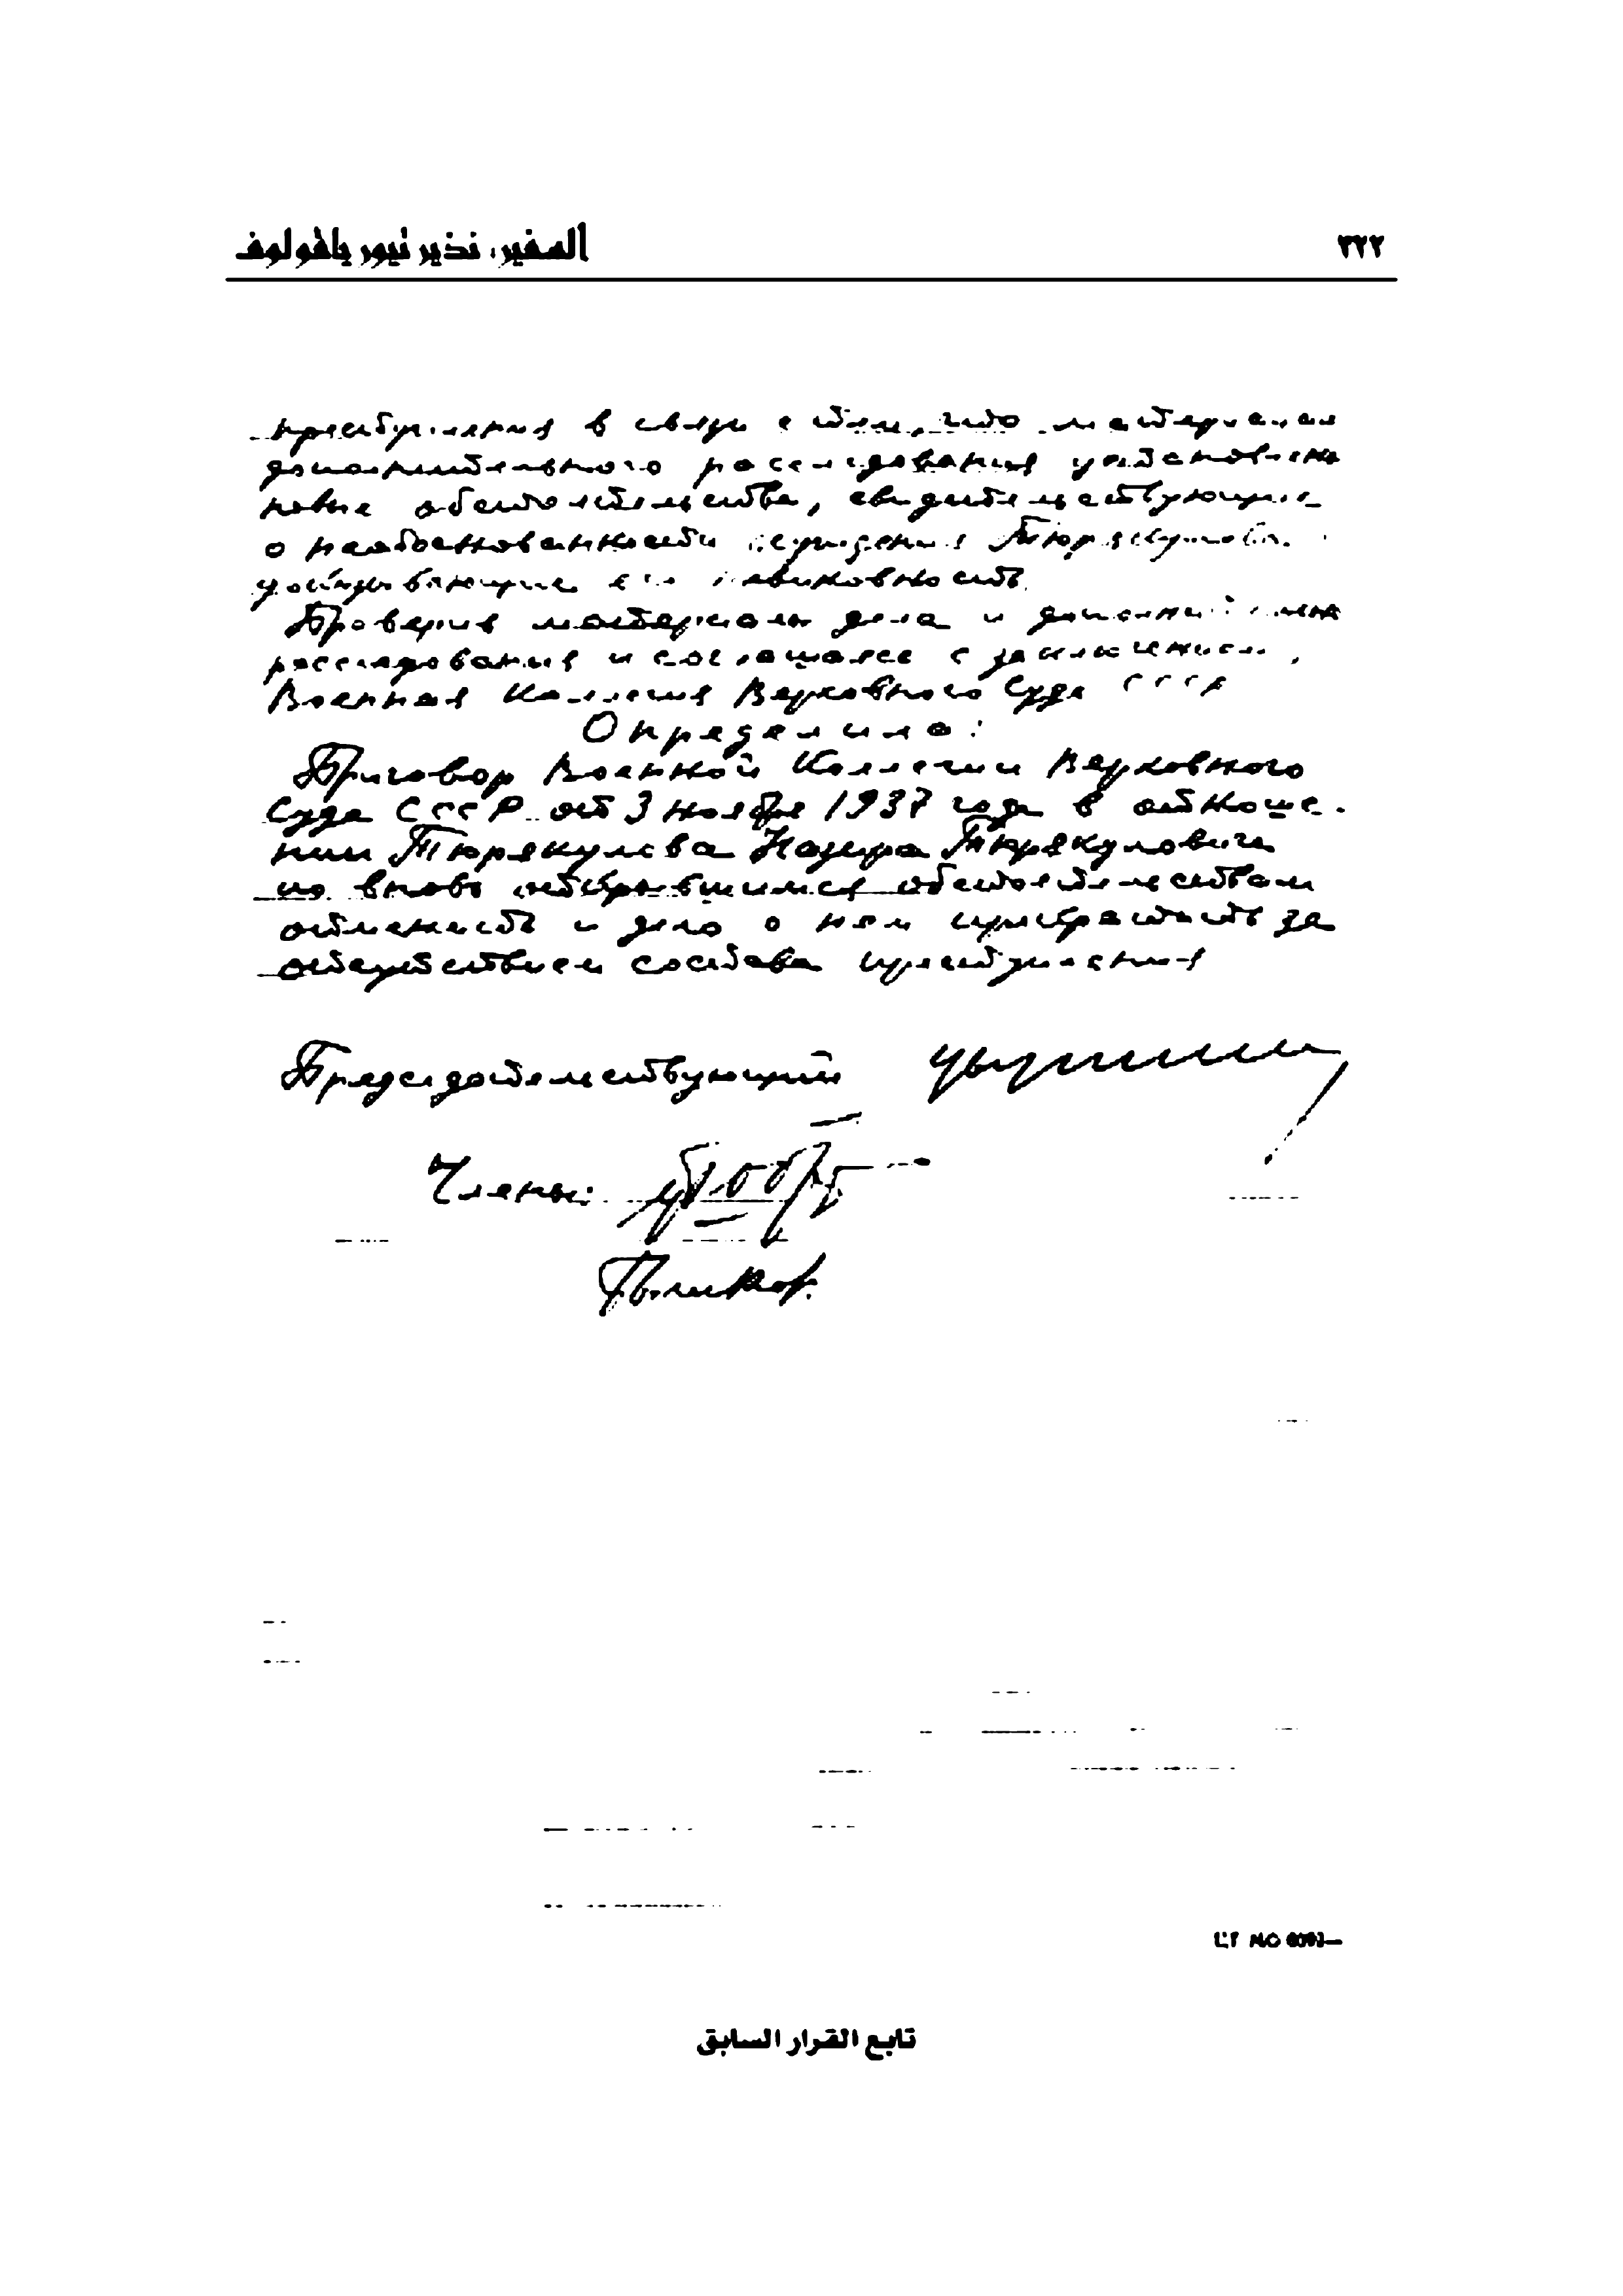 السفير، نذير تيور ياقولوف ٣٢٢
преступления в связи с тем, что материалами
дополнительного расследования установлены
новые обстоятельства, свидетельствующие
о необоснованности осуждения Тюрякулова и
доказывающие его невиновность.
Проверив материалы дела и дополнительного
расследования и соглашаясь с заключением,
Военная Коллегия Верховного Суда СССР
Определила:
Приговор Военной Коллегии Верховного
Суда СССР от 3 ноября 1937 года в отноше-
нии Тюрякулова Назира Тюрякуловича
по вновь открывшимся обстоятельствам
отменить и дело о нем прекратить за
отсутствием состава преступления
Председательствующий
Члены:
تابع القرار السابق